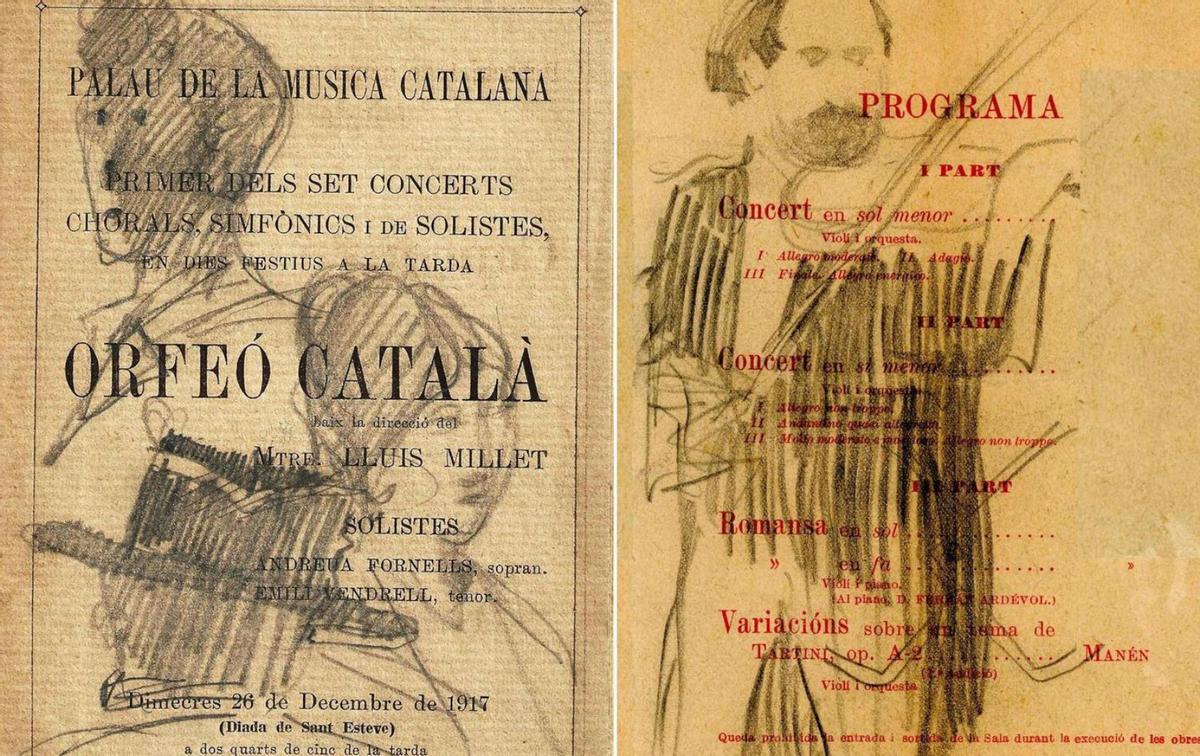 PALAU DE LA MUSICA CATALANA
PRIMER DELS SET CONCERTS
CHORALS, SIMFÒNICS I DE SOLISTES,
EN DIES FESTIUS A LA TARDA
ORFEÓ CATALÀ
baix la direcció del
MTRE. LLUIS MILLET
SOLISTES
ANDREUA FORNELLS, sopran.
EMILI VENDRELL, tenor.
Dimecres 26 de Decembre de 1917
(Diada de Sant Esteve)
a dos quarts de cinc de la tarda
PROGRAMA
I PART
Concert en sol menor . . . . . . . . .
Violí i orquesta.
I Allegro moderato. II Adagio.
III Finale. Allegro energico.
II PART
Concert en si menor . . . . . . . . .
Violí i orquesta.
I Allegro non troppo.
II Andantino quasi allegretto.
III Molto moderato e maestoso. Allegro non troppo.
III PART
Romansa en sol . . . . . . . . . . . . .
» en fa . . . . . . . . . . . . . »
Violí i piano.
(Al piano, D. FERRÁN ARDÉVOL.)
Variacións sobre un tema de
TARTINI, op. A-2 . . . . . . . . . . . MANÉN
Violí i orquesta
Queda prohibida la entrada i sortida de la Sala durant la execució de les obres